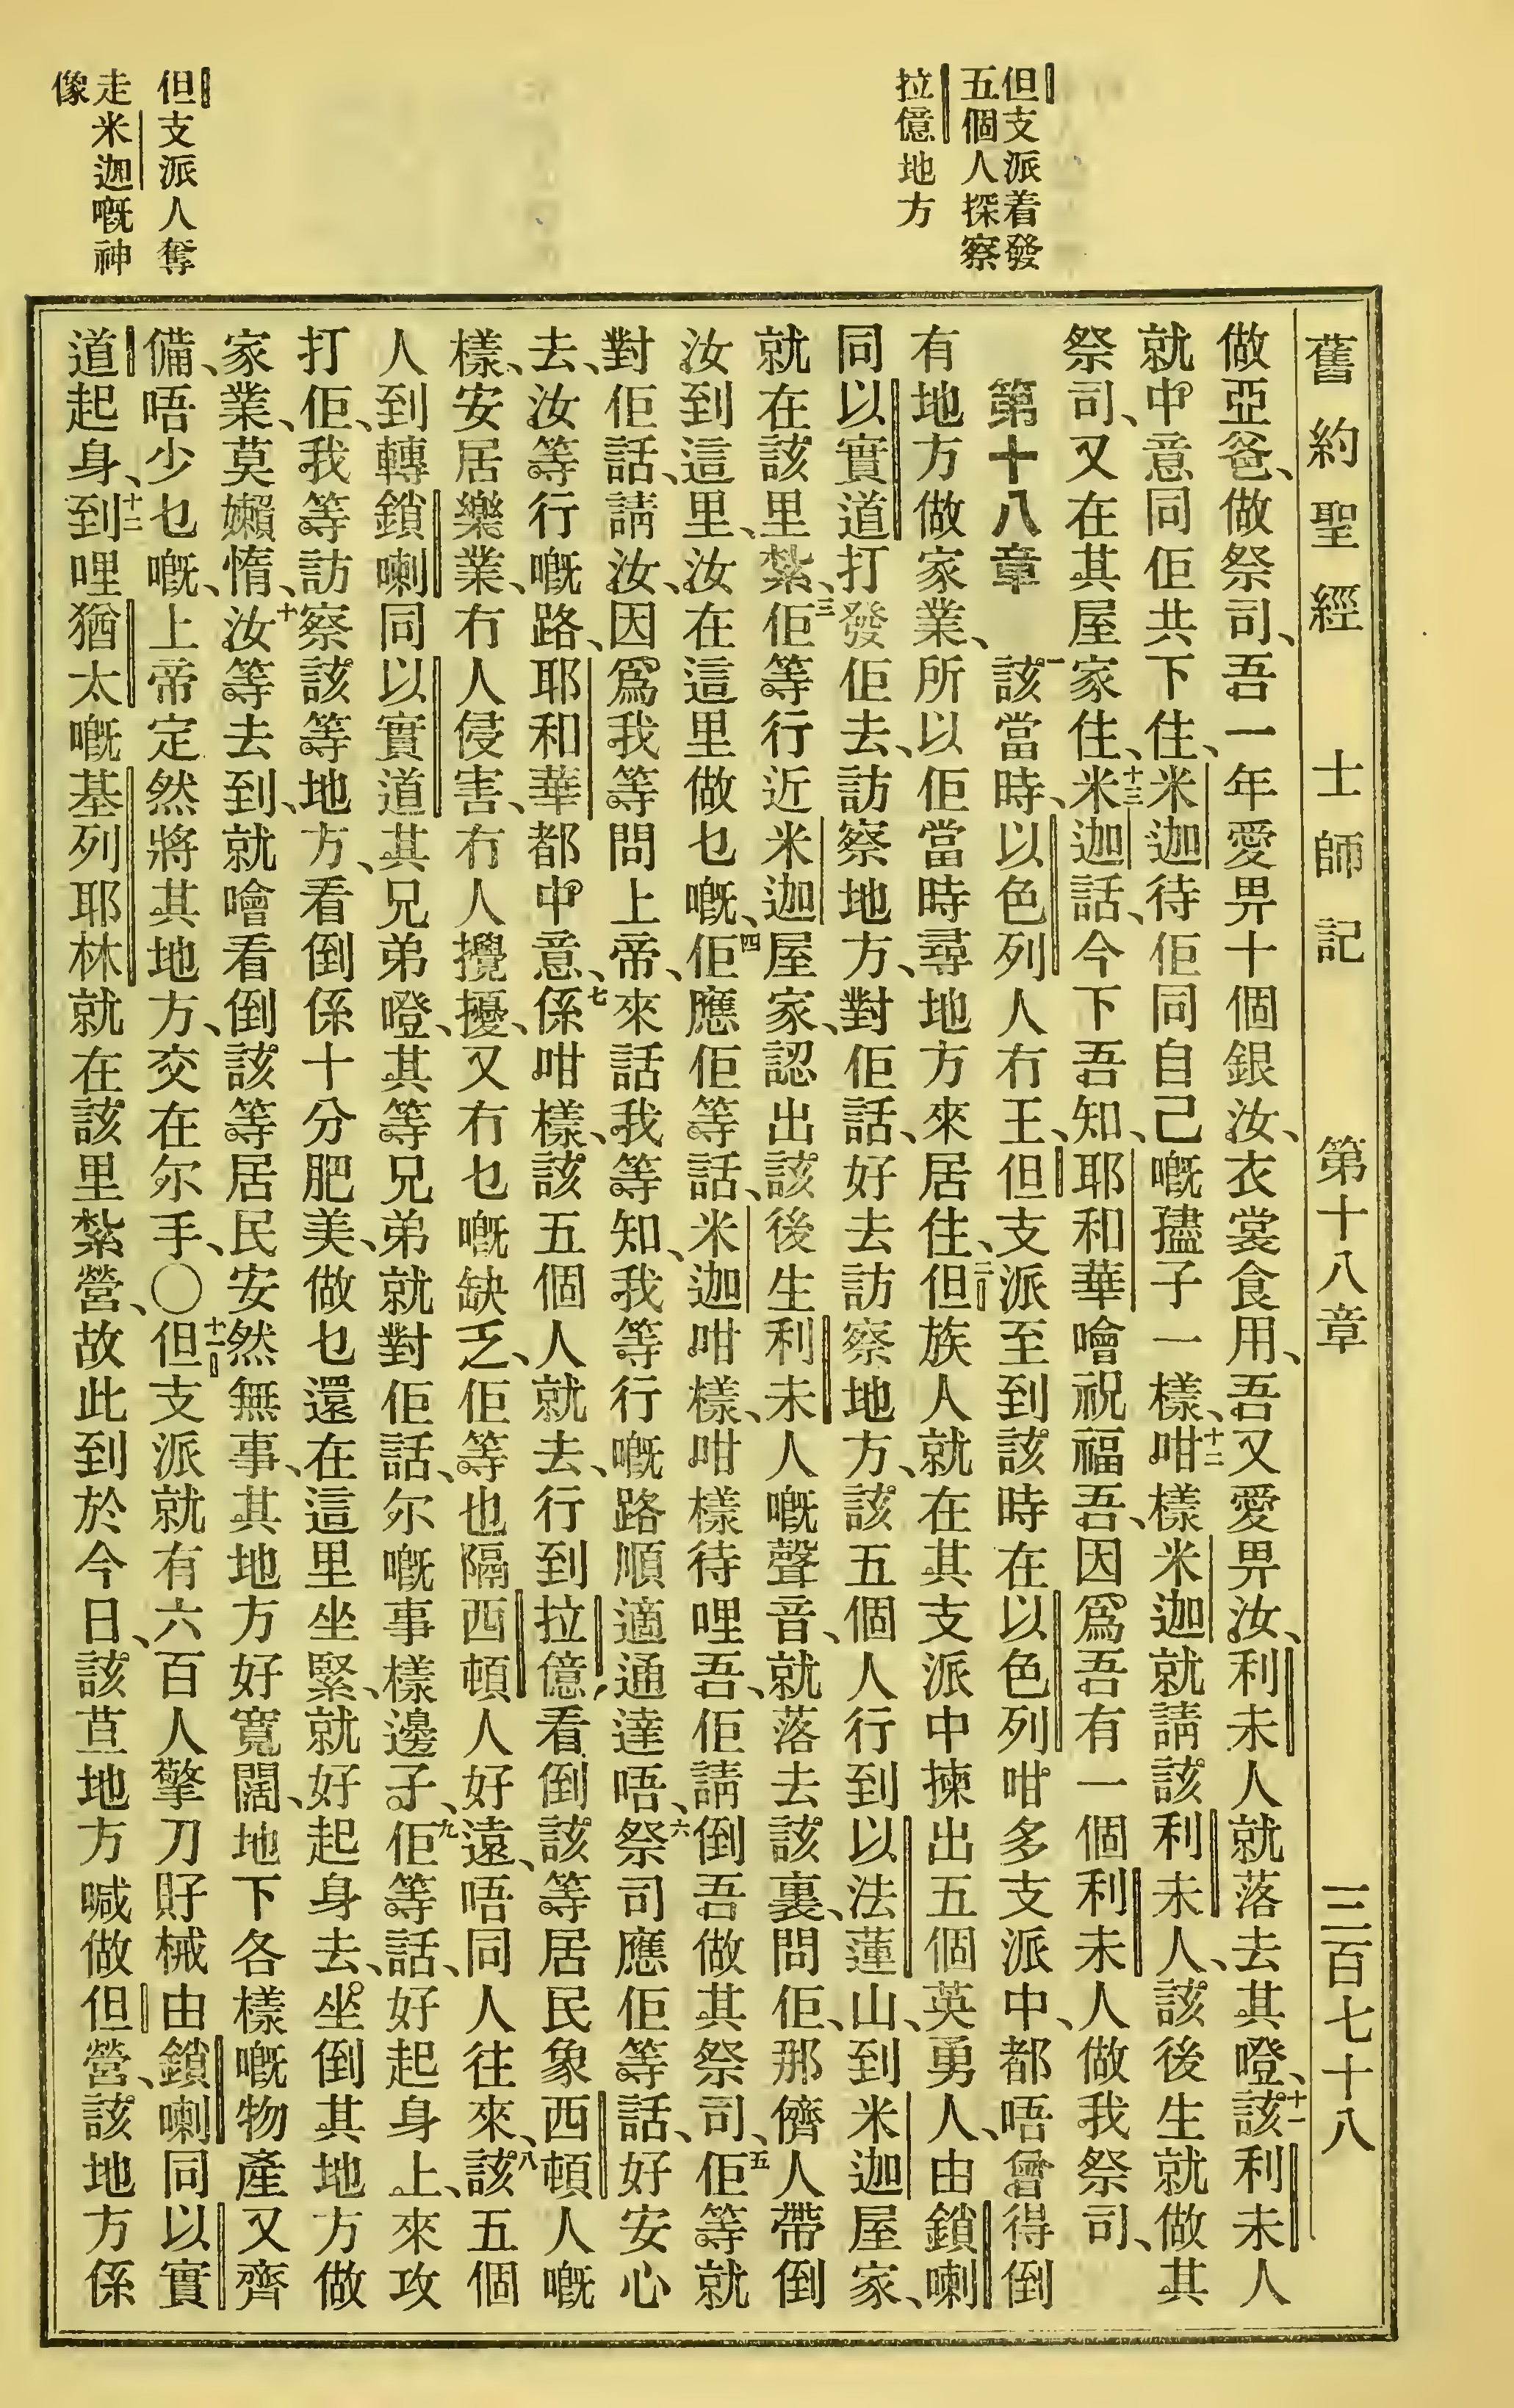 舊約聖經　士師記　第十八章　三百七十八
但支派着發
五個人探察
拉億地方
但支派人奪
走米迦嘅神
像
做亞爸、做祭司、吾一年愛畀十個銀汝、衣裳食用、吾又愛畀汝、利未人就落去其噔、十一該利未人
就中意同佢共下住、米迦待佢同自己嘅孻子一樣、十二咁樣米迦就請該利未人、該後生就做其
祭司、又在其屋家住、十三米迦話、今下吾知、耶和華噲祝福吾、因爲吾有一個利未人做我祭司、
第十八章　一該當時、以色列人冇王、但支派至到該時在以色列咁多支派中、都唔曾得倒
有地方做家業、所以佢當時尋地方來居住、二但族人就在其支派中揀出五個英勇人、由鎖喇
同以實道打發佢去、訪察地方、對佢話、好去訪察地方、該五個人行到以法蓮山、到米迦屋家、
就在該里紮、三佢等行近米迦屋家、認出該後生利未人嘅聲音、就落去該裏、問佢、那儕人帶倒
汝到這里、汝在這里做乜嘅、四佢應佢等話、米迦咁樣、咁樣待哩吾、佢請倒吾做其祭司、五佢等就
對佢話、請汝、因爲我等問上帝、來話我等知、我等行嘅路順適通達唔、六祭司應佢等話、好安心
去、汝等行嘅路、耶和華都中意、七係咁樣、該五個人就去、行到拉億、看倒該等居民象西頓人嘅
樣、安居樂業、冇人侵害、冇人攪擾、又冇乜嘅缺乏、佢等也隔西頓人好遠、唔同人往來、八該五個
人到轉鎖喇同以實道其兄弟噔、其等兄弟就對佢話、尔嘅事樣邊子、九佢等話、好起身上、來攻
打佢、我等訪察該等地方、看倒係十分肥美、做乜還在這里坐緊、就好起身去、坐倒其地方做
家業、莫嬾惰、十汝等去到、就噲看倒該等居民安然無事、其地方好寬闊、地下各樣嘅物產又齊
備、唔少乜嘅、上帝定然將其地方、交在尔手、〇十一但支派就有六百人擎刀𧵳械由鎖喇同以實
道起身、十二到哩猶太嘅基列耶林就在該里紮營、故此到於今日、該荁地方喊做但營、該地方係